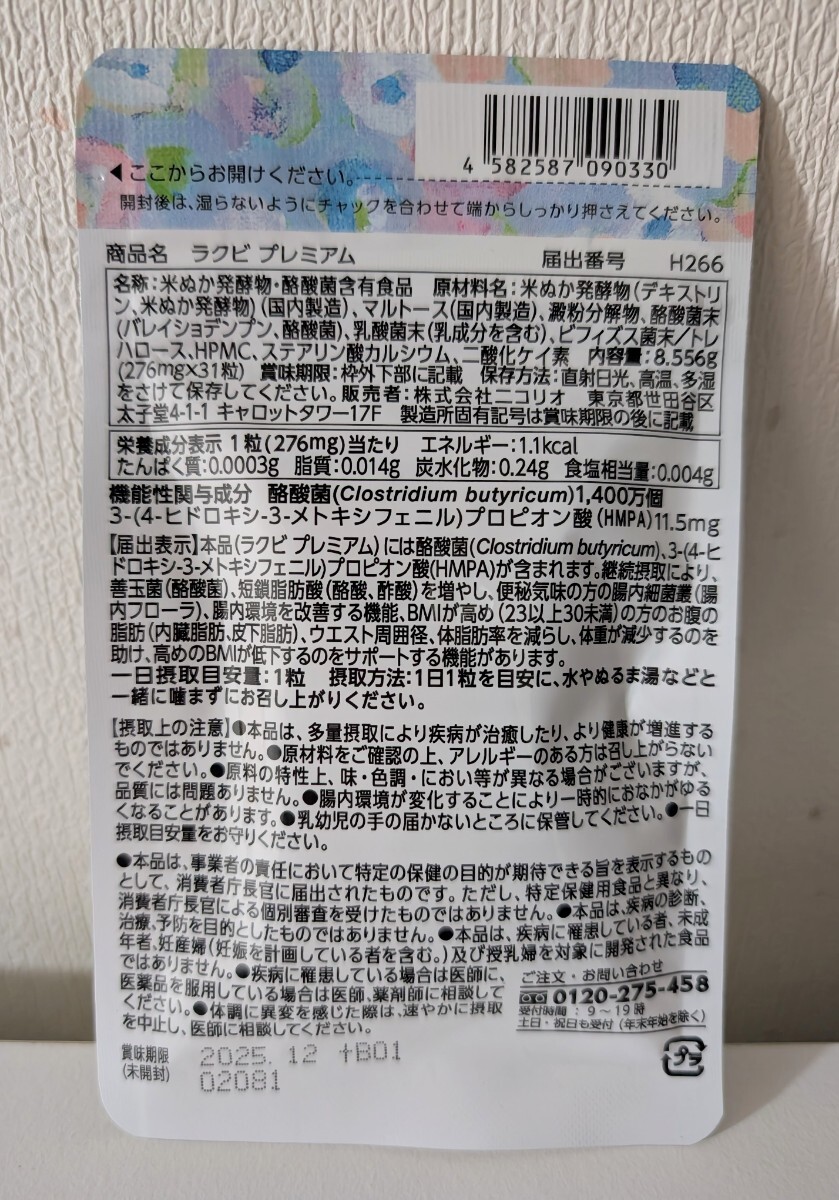 4 582587 090330
◀ここからお開けください。
開封後は、湿らないようにチャックを合わせて端からしっかり押さえてください。
商品名 ラクビ プレミアム 届出番号 H266
名称:米ぬか発酵物・酪酸菌含有食品 原材料名:米ぬか発酵物(デキストリ
ン、米ぬか発酵物)(国内製造)、マルトース(国内製造)、澱粉分解物、酪酸菌末
(バレイショデンプン、酪酸菌)、乳酸菌末(乳成分を含む)、ビフィズス菌末/トレ
ハロース、HPMC、ステアリン酸カルシウム、二酸化ケイ素 内容量:8.556g
(276mg×31粒) 賞味期限:枠外下部に記載 保存方法:直射日光、高温、多湿
をさけて保存してください。販売者:株式会社ニコリオ 東京都世田谷区
太子堂4-1-1 キャロットタワー17F 製造所固有記号は賞味期限の後に記載
栄養成分表示 1粒(276mg)当たり エネルギー:1.1kcal
たんぱく質:0.0003g 脂質:0.014g 炭水化物:0.24g 食塩相当量:0.004g
機能性関与成分 酪酸菌(Clostridium butyricum)1,400万個
3-(4-ヒドロキシ-3-メトキシフェニル)プロピオン酸(HMPA)11.5mg
【届出表示】本品(ラクビ プレミアム)には酪酸菌(Clostridium butyricum)、3-(4-ヒ
ドロキシ-3-メトキシフェニル)プロピオン酸(HMPA)が含まれます。継続摂取により、
善玉菌(酪酸菌)、短鎖脂肪酸(酪酸、酢酸)を増やし、便秘気味の方の腸内細菌叢(腸
内フローラ)、腸内環境を改善する機能、BMIが高め(23以上30未満)の方のお腹の
脂肪(内臓脂肪、皮下脂肪)、ウエスト周囲径、体脂肪率を減らし、体重が減少するのを
助け、高めのBMIが低下するのをサポートする機能があります。
一日摂取目安量:1粒 摂取方法:1日1粒を目安に、水やぬるま湯などと
一緒に噛まずにお召し上がりください。
【摂取上の注意】●本品は、多量摂取により疾病が治癒したり、より健康が増進する
ものではありません。●原材料をご確認の上、アレルギーのある方は召し上がらない
でください。●原料の特性上、味・色調・におい等が異なる場合がございますが、
品質には問題ありません。●腸内環境が変化することにより一時的におなかがゆる
くなることがあります。●乳幼児の手の届かないところに保管してください。●一日
摂取目安量をお守りください。
●本品は、事業者の責任において特定の保健の目的が期待できる旨を表示するもの
として、消費者庁長官に届出されたものです。ただし、特定保健用食品と異なり、
消費者庁長官による個別審査を受けたものではありません。●本品は、疾病の診断、
治療、予防を目的としたものではありません。●本品は、疾病に罹患している者、未成
年者、妊産婦(妊娠を計画している者を含む。)及び授乳婦を対象に開発された食品
ではありません。●疾病に罹患している場合は医師に、
医薬品を服用している場合は医師、薬剤師に相談して
ください。●体調に異変を感じた際は、速やかに摂取
を中止し、医師に相談してください。
ご注文・お問い合わせ
0120-275-458
受付時間:9〜19時
土日・祝日も受付(年末年始を除く)
賞味期限 2025.12 +B01
(未開封) 02081
プラ